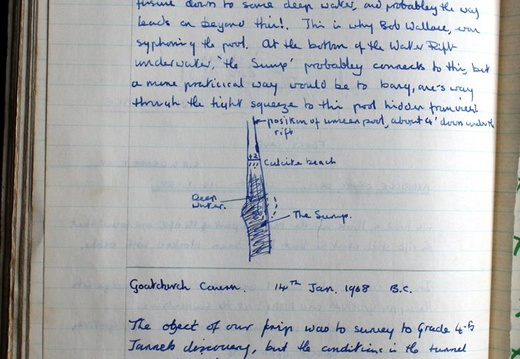 fissure down to some deep water, and probabley the way
leads on beyond this!. This is why Bob Wallace, was
syphoning the pool. At the bottom of the Water Rift
underwater, 'the Sump' probabley connects to this but
a more practicical way would be to bang, one's way
through the tight squeeze to this pool hidden from view
position of unseen pool, about 4' down under the
rift
Calcite beach
Deep
Water.
The Sump.
Goatchurch Cavern. 14th Jan, 1968 B.C.
The object of our trip was to survey to Grade 4-5
Jannets discovery, but the conditions in the tunnel